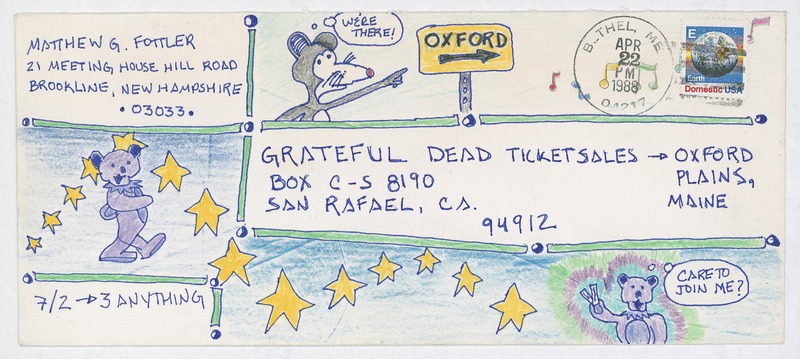 MATTHEW G. FOTTLER
21 MEETING HOUSE HILL ROAD
BROOKLINE, NEW HAMPSHIRE
• 03033 •
WE'RE
THERE!
OXFORD
APR
22
PM
1988
04217
E
Earth
Domestic USA
GRATEFUL DEAD TICKET SALES → OXFORD
BOX C-S 8190 PLAINS,
SAN RAFAEL, CA. MAINE
94912
7/2 → 3 ANYTHING
CARE TO
JOIN ME?